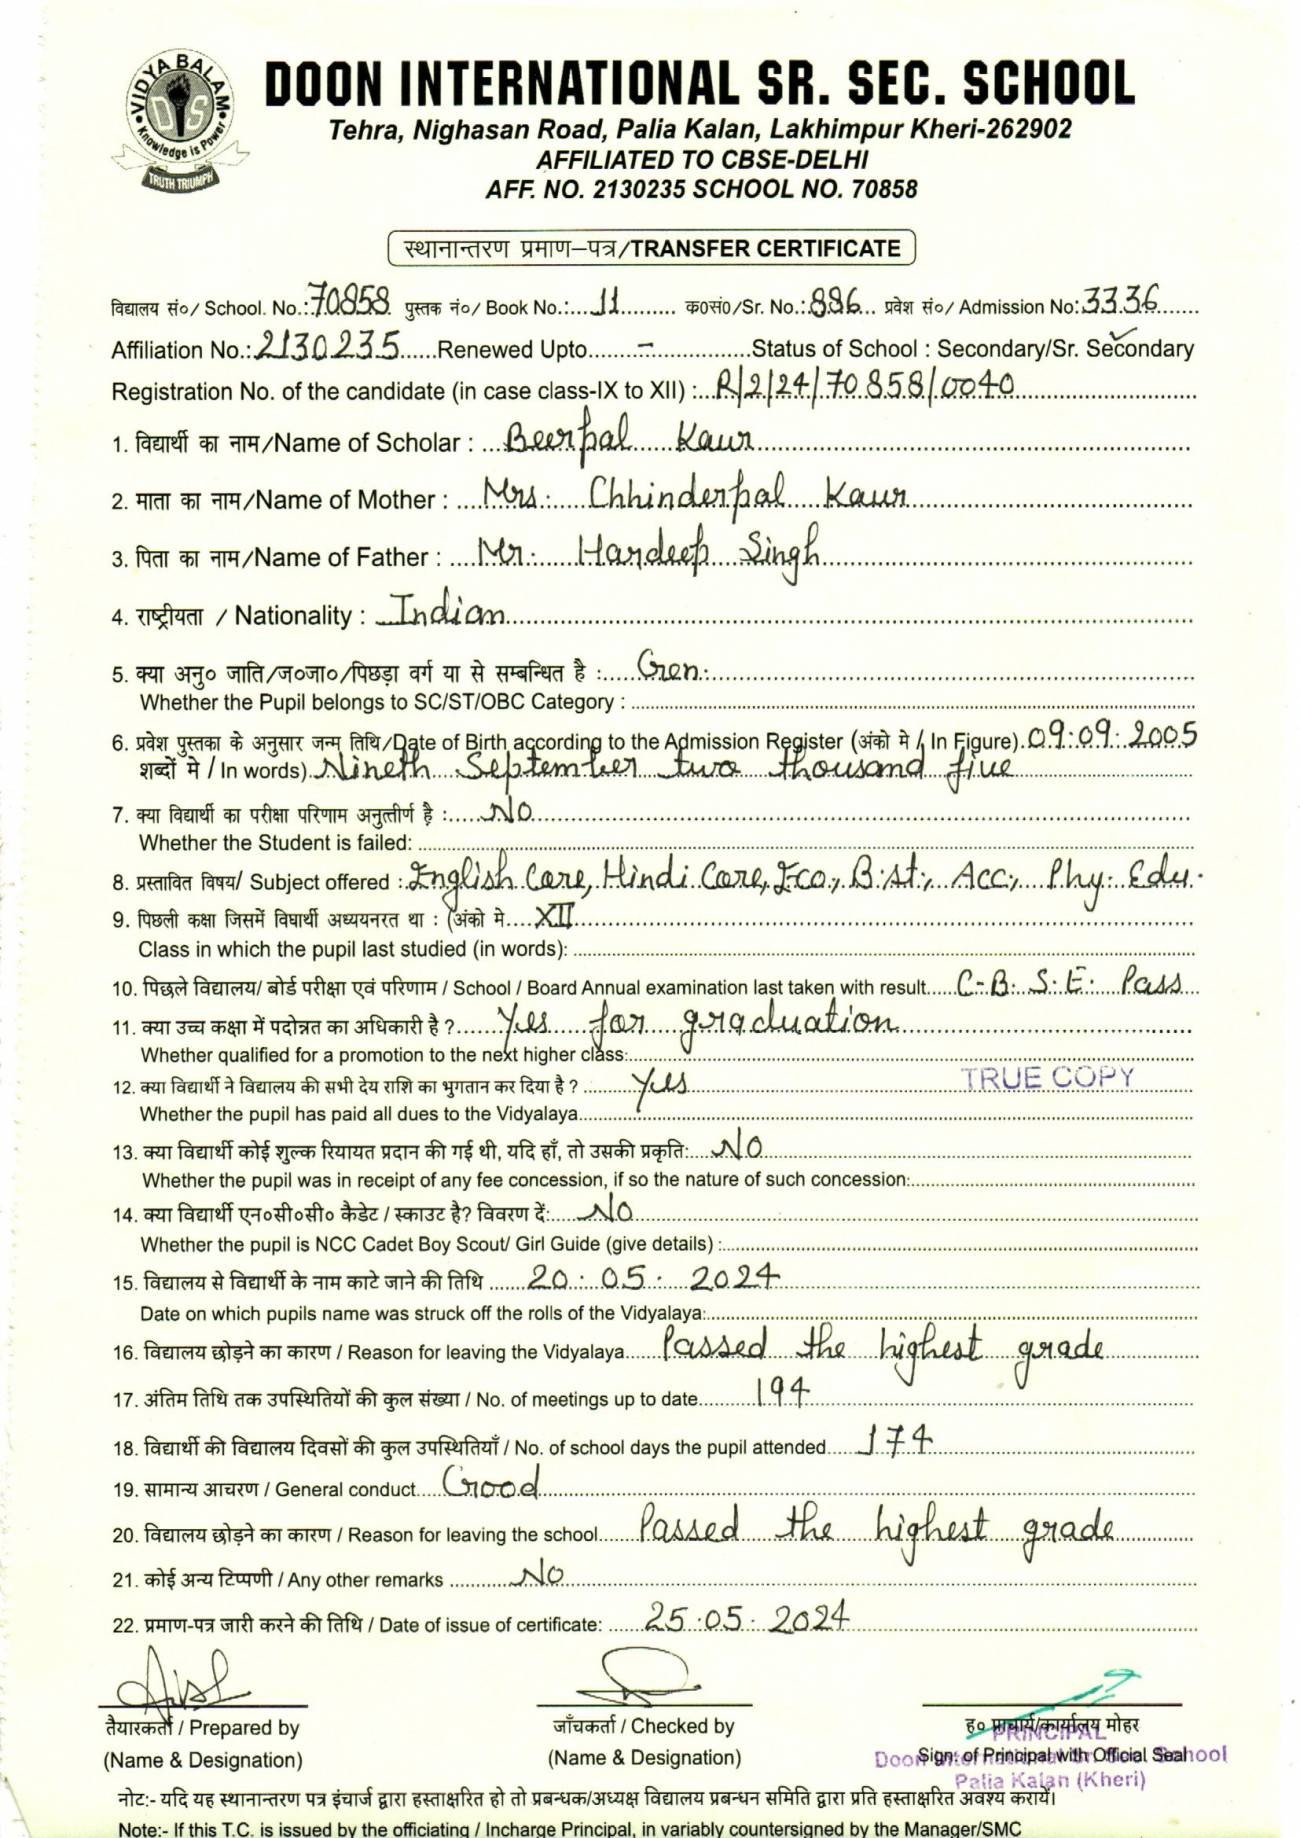 VIDYA BALAM
DIS
Knowledge is Power
TRUTH TRIUMPH
DOON INTERNATIONAL SR. SEC. SCHOOL
Tehra, Nighasan Road, Palia Kalan, Lakhimpur Kheri-262902
AFFILIATED TO CBSE-DELHI
AFF. NO. 2130235 SCHOOL NO. 70858
स्थानान्तरण प्रमाण–पत्र/TRANSFER CERTIFICATE
विद्यालय सं०/ School. No.: 70858 पुस्तक नं०/ Book No.: 11 क०सं०/Sr. No.: 886 प्रवेश सं०/ Admission No: 3336
Affiliation No.: 2130235 Renewed Upto – Status of School : Secondary/Sr. Secondary
Registration No. of the candidate (in case class-IX to XII) : R/2/24/70858/0040
1. विद्यार्थी का नाम/Name of Scholar : Beerpal Kaur
2. माता का नाम/Name of Mother : Mrs. Chhinderpal Kaur
3. पिता का नाम/Name of Father : Mr. Hardeep Singh
4. राष्ट्रीयता / Nationality : Indian
5. क्या अनु० जाति/ज०जा०/पिछड़ा वर्ग या से सम्बन्धित है : Gen.
Whether the Pupil belongs to SC/ST/OBC Category :
6. प्रवेश पुस्तका के अनुसार जन्म तिथि/Date of Birth according to the Admission Register (अंको मे / In Figure). 09.09.2005
शब्दों मे / In words). Nineth September two thousand five
7. क्या विद्यार्थी का परीक्षा परिणाम अनुत्तीर्ण है : No
Whether the Student is failed:
8. प्रस्तावित विषय/ Subject offered : English Core, Hindi Core, Eco., B.st., Acc., Phy. Edu.
9. पिछली कक्षा जिसमें विघार्थी अध्ययनरत था : (अंको मे XII
Class in which the pupil last studied (in words):
10. पिछले विद्यालय/ बोर्ड परीक्षा एवं परिणाम / School / Board Annual examination last taken with result C.B.S.E. Pass
11. क्या उच्च कक्षा में पदोन्नत का अधिकारी है ? Yes for graduation
Whether qualified for a promotion to the next higher class:
12. क्या विद्यार्थी ने विद्यालय की सभी देय राशि का भुगतान कर दिया है ? Yes TRUE COPY
Whether the pupil has paid all dues to the Vidyalaya
13. क्या विद्यार्थी कोई शुल्क रियायत प्रदान की गई थी, यदि हाँ, तो उसकी प्रकृति: No
Whether the pupil was in receipt of any fee concession, if so the nature of such concession:
14. क्या विद्यार्थी एन०सी०सी० कैडेट / स्काउट है? विवरण दें: No
Whether the pupil is NCC Cadet Boy Scout/ Girl Guide (give details) :
15. विद्यालय से विद्यार्थी के नाम काटे जाने की तिथि 20.05.2024
Date on which pupils name was struck off the rolls of the Vidyalaya:
16. विद्यालय छोड़ने का कारण / Reason for leaving the Vidyalaya Passed the highest grade
17. अंतिम तिथि तक उपस्थितियों की कुल संख्या / No. of meetings up to date 194
18. विद्यार्थी की विद्यालय दिवसों की कुल उपस्थितियाँ / No. of school days the pupil attended 174
19. सामान्य आचरण / General conduct Good
20. विद्यालय छोड़ने का कारण / Reason for leaving the school Passed the highest grade
21. कोई अन्य टिप्पणी / Any other remarks No
22. प्रमाण-पत्र जारी करने की तिथि / Date of issue of certificate: 25.05.2024
तैयारकर्ता / Prepared by जाँचकर्ता / Checked by ह० प्राचार्य/कार्यालय मोहर
PRINCIPAL
(Name & Designation) (Name & Designation) Sign. of Principal with Official Seal
Doon International Sr. Sec. School
Palia Kalan (Kheri)
नोट:- यदि यह स्थानान्तरण पत्र इंचार्ज द्वारा हस्ताक्षरित हो तो प्रबन्धक/अध्यक्ष विद्यालय प्रबन्धन समिति द्वारा प्रति हस्ताक्षरित अवश्य करायें।
Note:- If this T.C. is issued by the officiating / Incharge Principal, in variably countersigned by the Manager/SMC